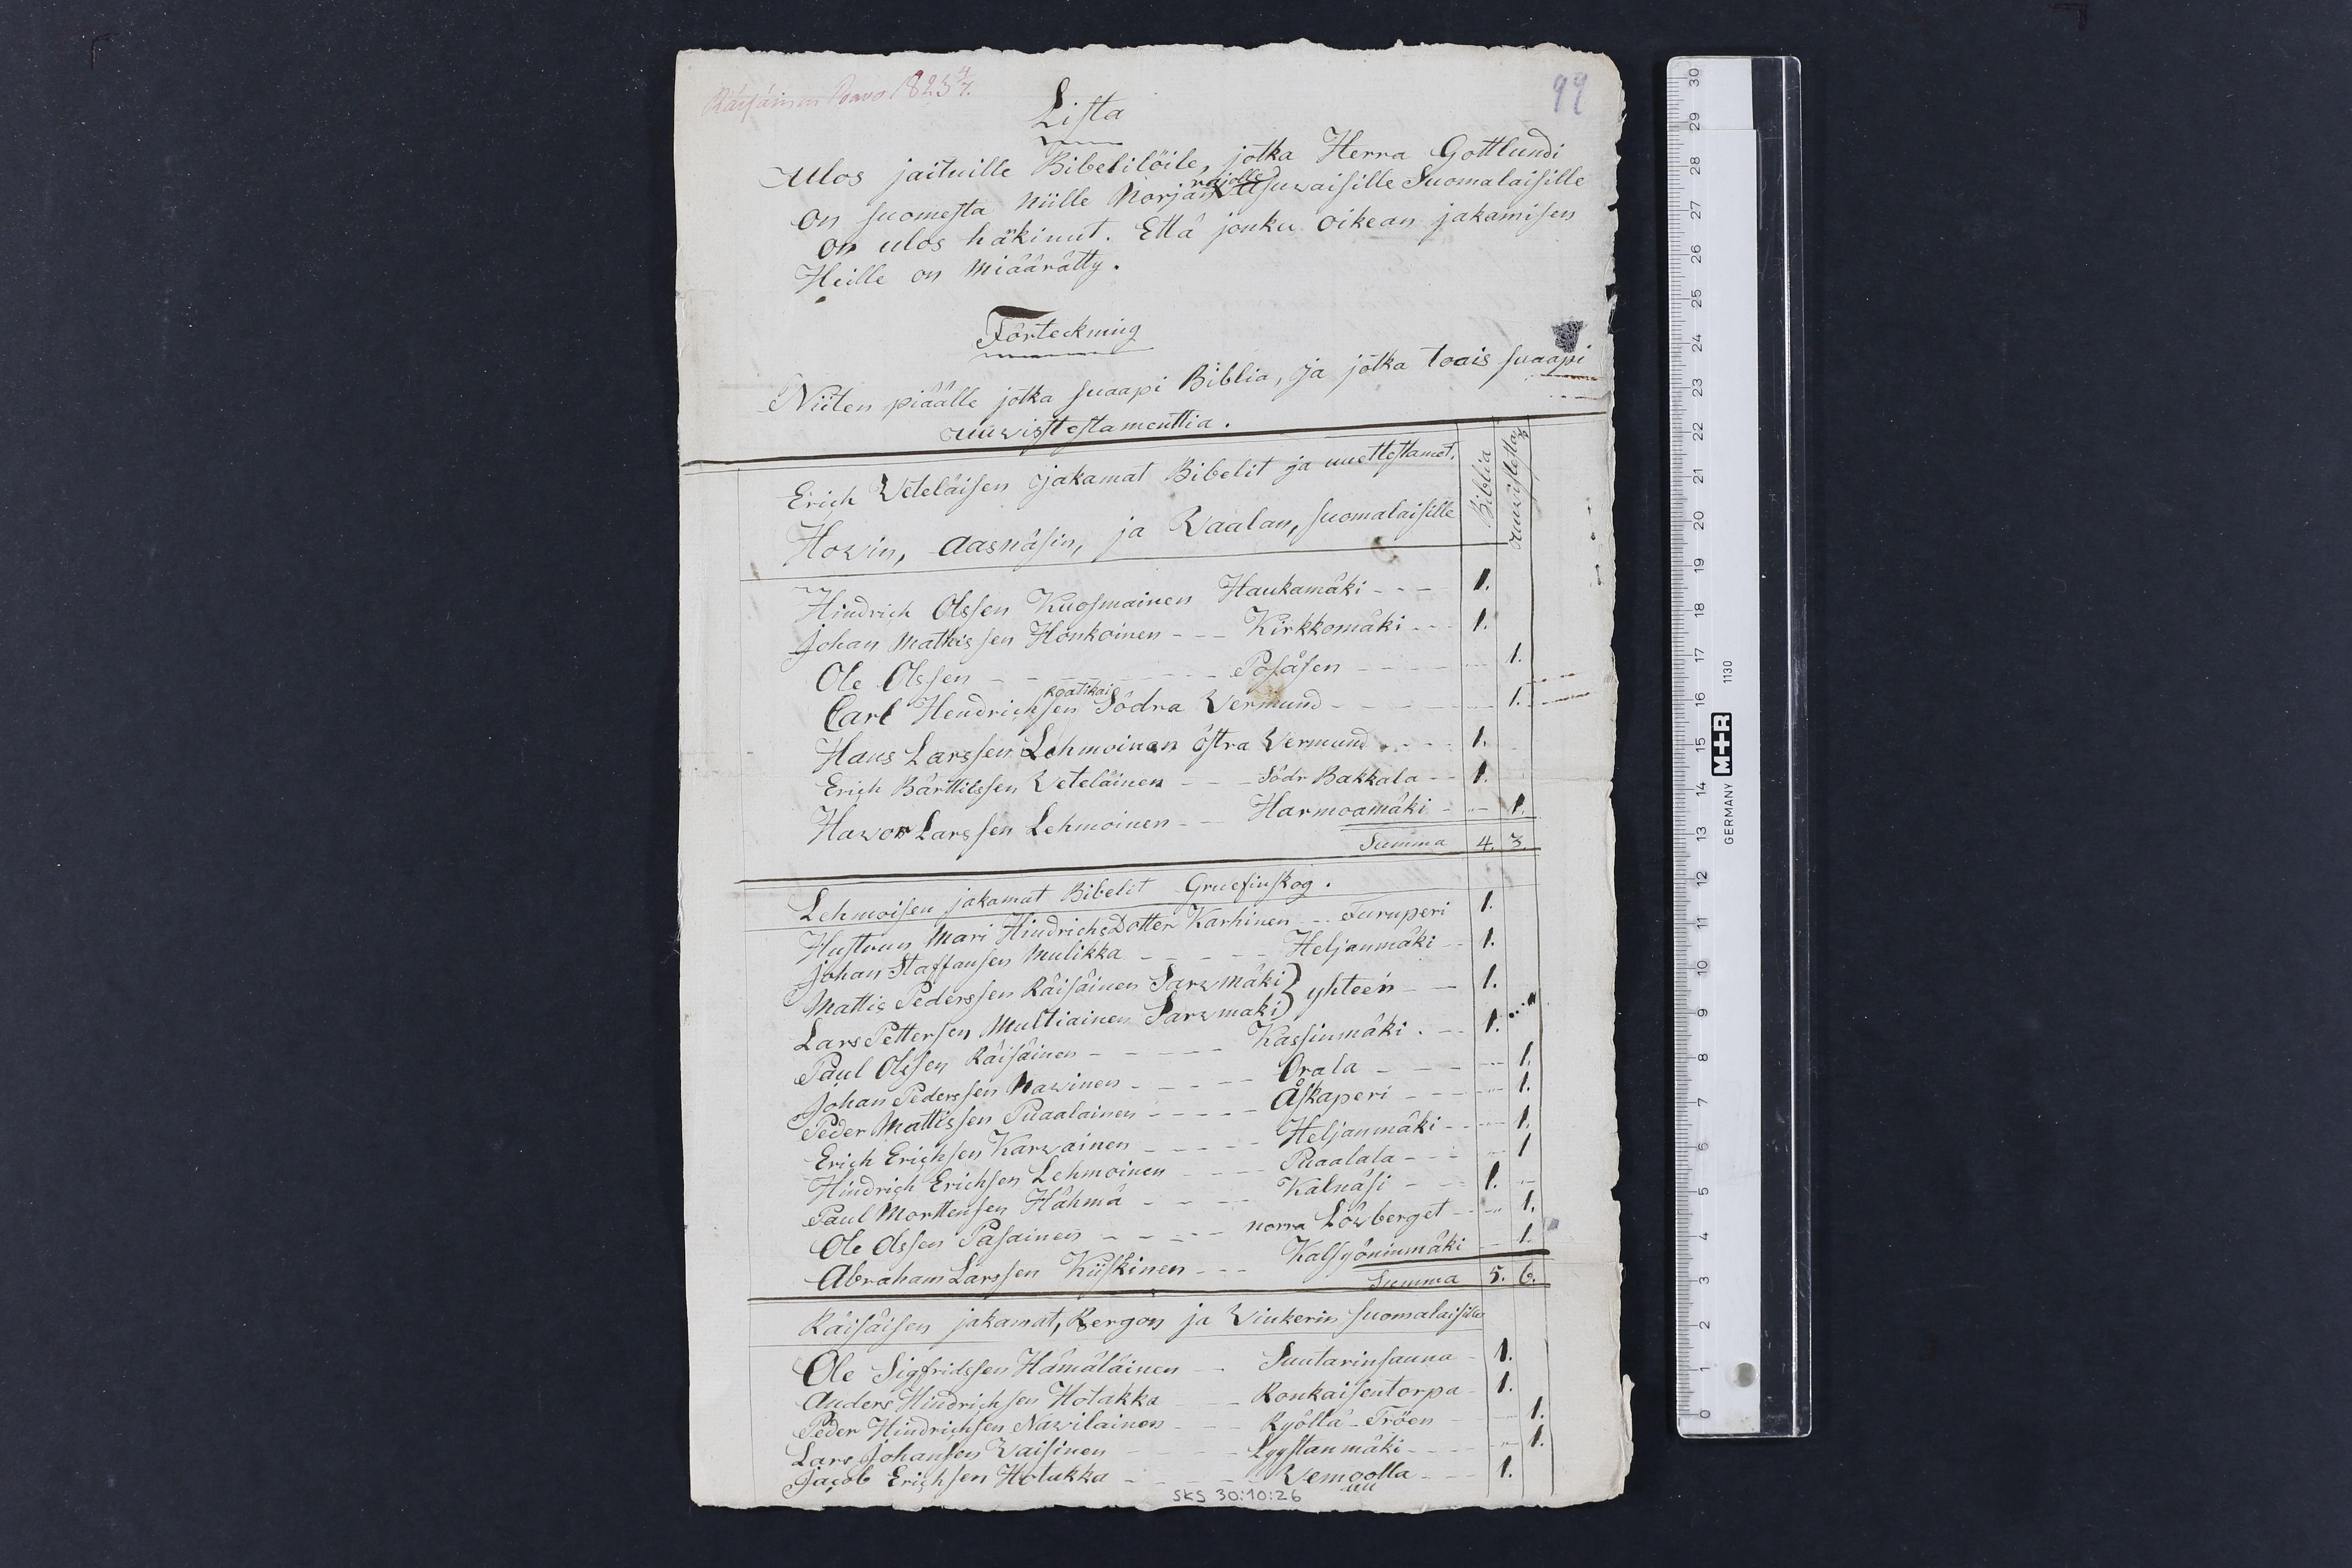 Räisäinen Pavo 1823 4/7.
99
Lista
Ulos jaituille Bibelilöile, jotka Herra Gottlundi
on suomesta niille Norjan rajolle Asuwaisille Suomalaisille
on ulos häkinut. Että jonku oikean jakamisen
Heille on miäärätty.
Förteckning
Niiten piäälle jotka suaapi Biblia, ja jotka toais suaapi
uuwisttestamenttia.
Erich Weteläisen jakamat Bibelit ja uuettestamet. Biblia uuwisttesta
Howin, Aasnäsin, ja Waalan, suomalaisille
Hindrich Olssen Kuosmainen Haukamäki - - - 1.
Johan Mathissen Honkoinen - - - Kirkkomäki - - - 1.
Ole Olssen - - - Påsåsen - - - 1.
Carl Hendrichsen Roatikain Södra Vermund - - - 1.
Hans Larssen Lehmoinen östra Vermund - - - 1.
Erich Bärttilssen Weteläinen - - - Södr Bakkala - - 1.
Hawor Larssen Lehmoinen - - - Harmoamäki - - - 1.
Summa 4. 3.
Lehmoisen jakamat Bibelit Gruefinskog.
Hustruun Mari HindrichsDotter Karhinen - - Furuperi 1.
Johan Staffansen Mulikka - - - Heljanmäki - - 1.
Mattis Pederssen Räisäinen Sarwmäki } yhteen - - 1.
Lars Pettersen Multiainen Sarwmäki
Paul Olssen Räisäinen - - - Kassinmäki - - 1.
Johan Pederssen Nawinen - - - Orala - - - 1.
Peder Mattissen Puaalainen - - - Åskaperi - - - 1.
Erich Erichsen Karwainen - - - Heljanmäki - - - 1.
Hindrich Erichsen Lehmoinen - - - Puaalala - - - 1
Paul Morttensen Hähmä - - - Kalnäsi - - - 1.
Ole Olssen Pasainen - - - norra Löwberget - - - 1.
Abraham Larssen Kiiskinen - - - Kalsyöninmäki - - 1.
Summa 5. 6.
Räisäisen jakamat, Bergon ja Winkerin suomalaisille
Ole Sigfridssen Hämäläinen - - Suutarinsauna - 1.
Anders Hindrichsen Hotakka - - Ronkaisentorpa - 1.
Peder Hindrichsen Nawilainen - - - Ryöllä-Tröen - - - 1.
Lars Johansen Waisinen - - - Lyystanmäki - - - 1.
Jacob Erichsen Hotakka - - - Vemoolla - - - 1.
uu
SKS 30:10:26
30 29 28 27 26 25 24 23 22 21 20 19 18 17 16 15 14 13 12 11 10 9 8 7 6 5 4 3 2 1 0
GERMANY M+R 1130